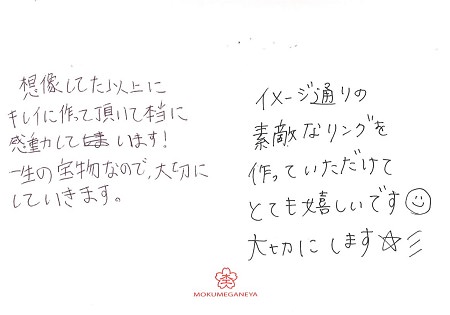 想像してた以上に
キレイに作って頂いて本当に
感動しています!
一生の宝物なので、大切に
していきます。
イメージ通りの
素敵なリングを
作っていただけて
とても嬉しいです
大切にします☆彡
MOKUMEGANEYA